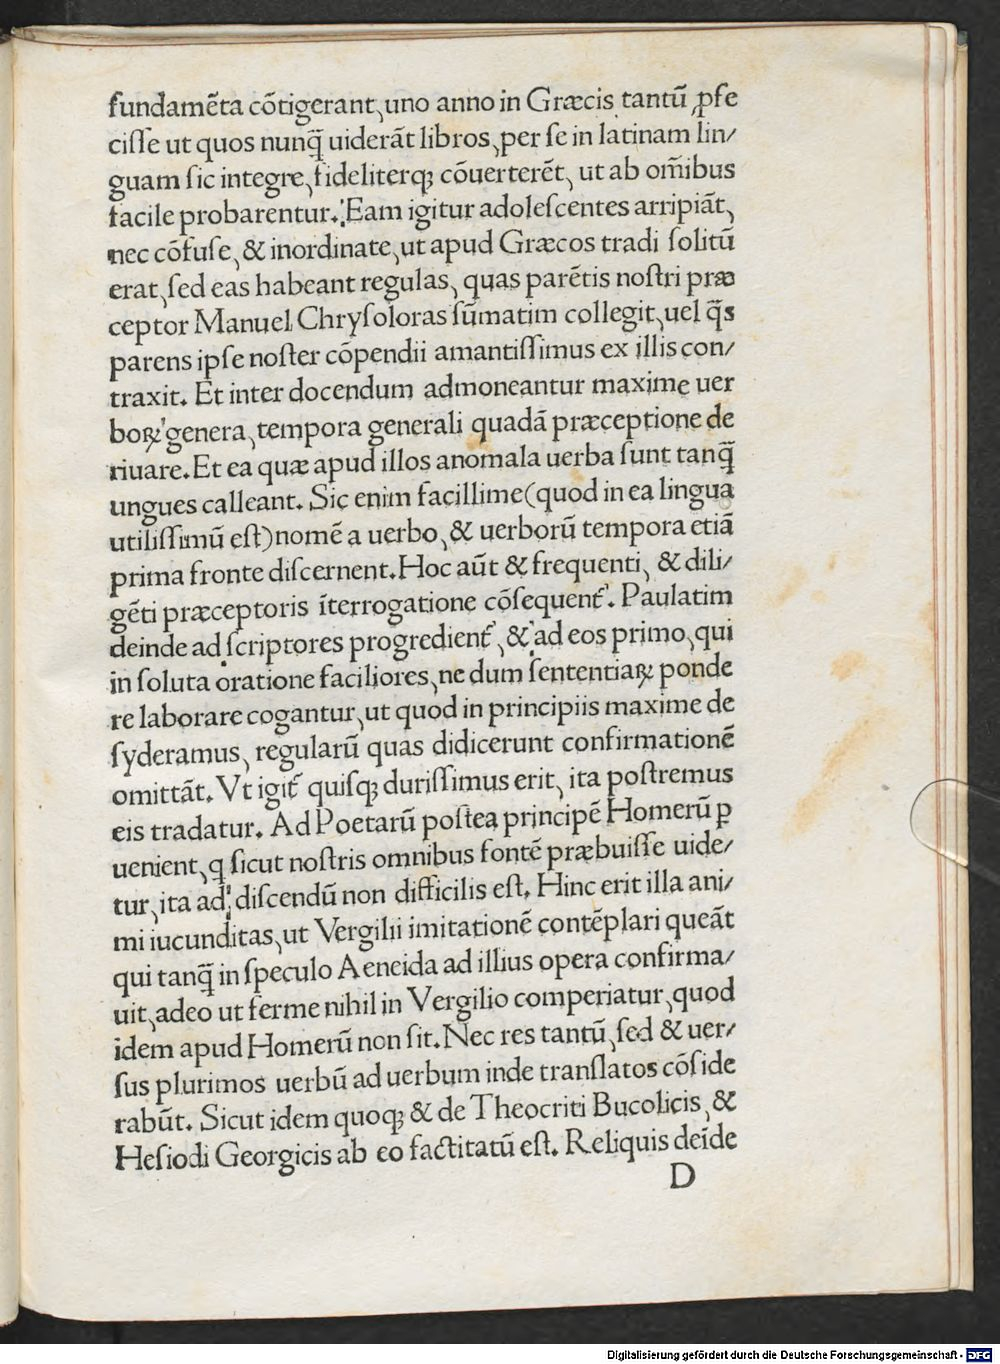 fundamēta cōtigerant, uno anno in Græcis tantū ꝓfe
ciſſe ut quos nunq̄ uiderāt libros, per ſe in latinam lin/
guam ſic integre, fideliterq; cōuerterēt, ut ab om̄ibus
facile probarentur. Eam igitur adoleſcentes arripiāt,
nec cōfuſe, & inordinate, ut apud Græcos tradi ſolitū
erat, ſed eas habeant regulas, quas parētis noſtri præ
ceptor Manuel Chryſoloras ſūmatim collegit, uel q̄s
parens ipſe noſter cōpendii amantiſſimus ex illis con/
traxit. Et inter docendum admoneantur maxime uer
boꝝ genera, tempora generali quadā præceptione de
riuare. Et ea quæ apud illos anomala uerba ſunt tanq̄
ungues calleant. Sic enim facillime (quod in ea lingua
utiliſſimū eſt) nomē a uerbo, & uerborū tempora etiā
prima fronte diſcernent. Hoc aūt & frequenti, & dili/
gēti præceptoris īterrogatione cōſequent᷑. Paulatim
deinde ad ſcriptores progredient᷑, & ad eos primo, qui
in ſoluta oratione faciliores, ne dum ſententiaꝝ ponde
re laborare cogantur, ut quod in principiis maxime de
ſyderamus, regularū quas didicerunt confirmationē
omittāt. Vt igit᷑ quiſq; duriſſimus erit, ita poſtremus
eis tradatur. Ad Poetarū poſtea principē Homerū ꝑ
uenient, q ſicut noſtris omnibus fontē præbuiſſe uide/
tur, ita ad diſcendū non difficilis eſt. Hinc erit illa ani/
mi iucunditas, ut Vergilii imitationē contēplari queāt
qui tanq̄ in ſpeculo Aeneida ad illius opera confirma/
uit, adeo ut ferme nihil in Vergilio comperiatur, quod
idem apud Homerū non ſit. Nec res tantū, ſed & uer/
ſus plurimos uerbū ad uerbum inde tranſlatos cōſide
rabūt. Sicut idem quoq; & de Theocriti Bucolicis, &
Heſiodi Georgicis ab eo factitatū eſt. Reliquis deīde
D
Digitalisierung gefördert durch die Deutsche Forschungsgemeinschaft - DFG